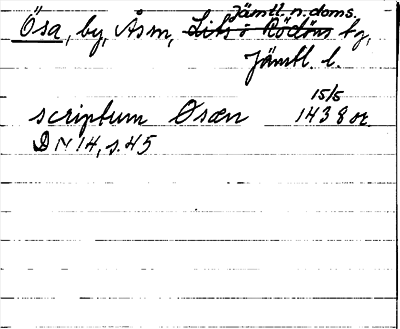 Jämtl. n. doms.
Ösa, by, Åsm, Lits o Rödöns tg,
Jämtl. l.
15/5
scriptum Osæn 1438 or.
DN 14, s. 45